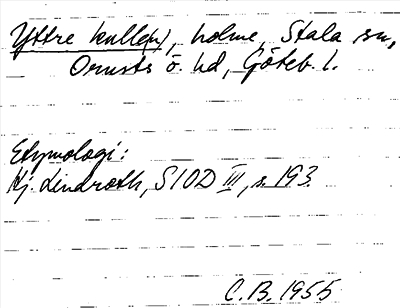 Yttre kulle(n), holme, Stala sn,
Orusts ö. hd, Göteb. l.
Etymologi:
Hj. Lindroth, SIOD III, s. 193.
C.B. 1955